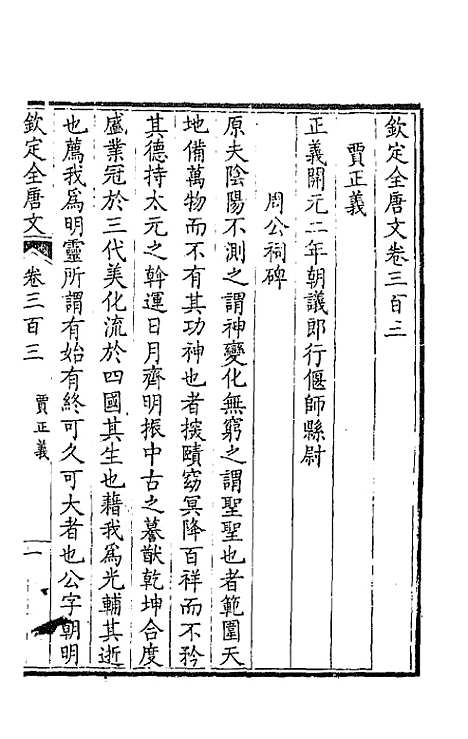 欽定全唐文卷三百三
賈正義
正義開元二年朝議郎行偃師縣尉
周公祠碑
原夫陰陽不測之謂神變化無窮之謂聖聖也者範圍天
地備萬物而不有其功神也者探賾窈冥降百祥而不矜
其德持太元之斡運日月齊明振中古之謩猷乾坤合度
盛業冠於三代美化流於四國其生也藉我爲光輔其逝
也薦我爲明靈所謂有始有終可久可大者也公字朝明
欽定全唐文 卷三百三 賈正義 一